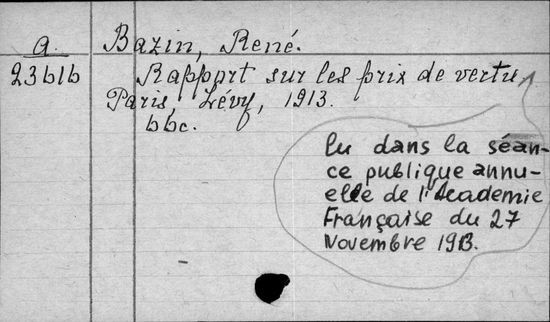 a.
Bazin, René.
23616
Rapport sur les prix de vertu,
Paris, Lévy, 1913.
bbc.
lu dans la séan-
ce publique annu-
elle de l'Academie
Française du 27
Novembre 1913.